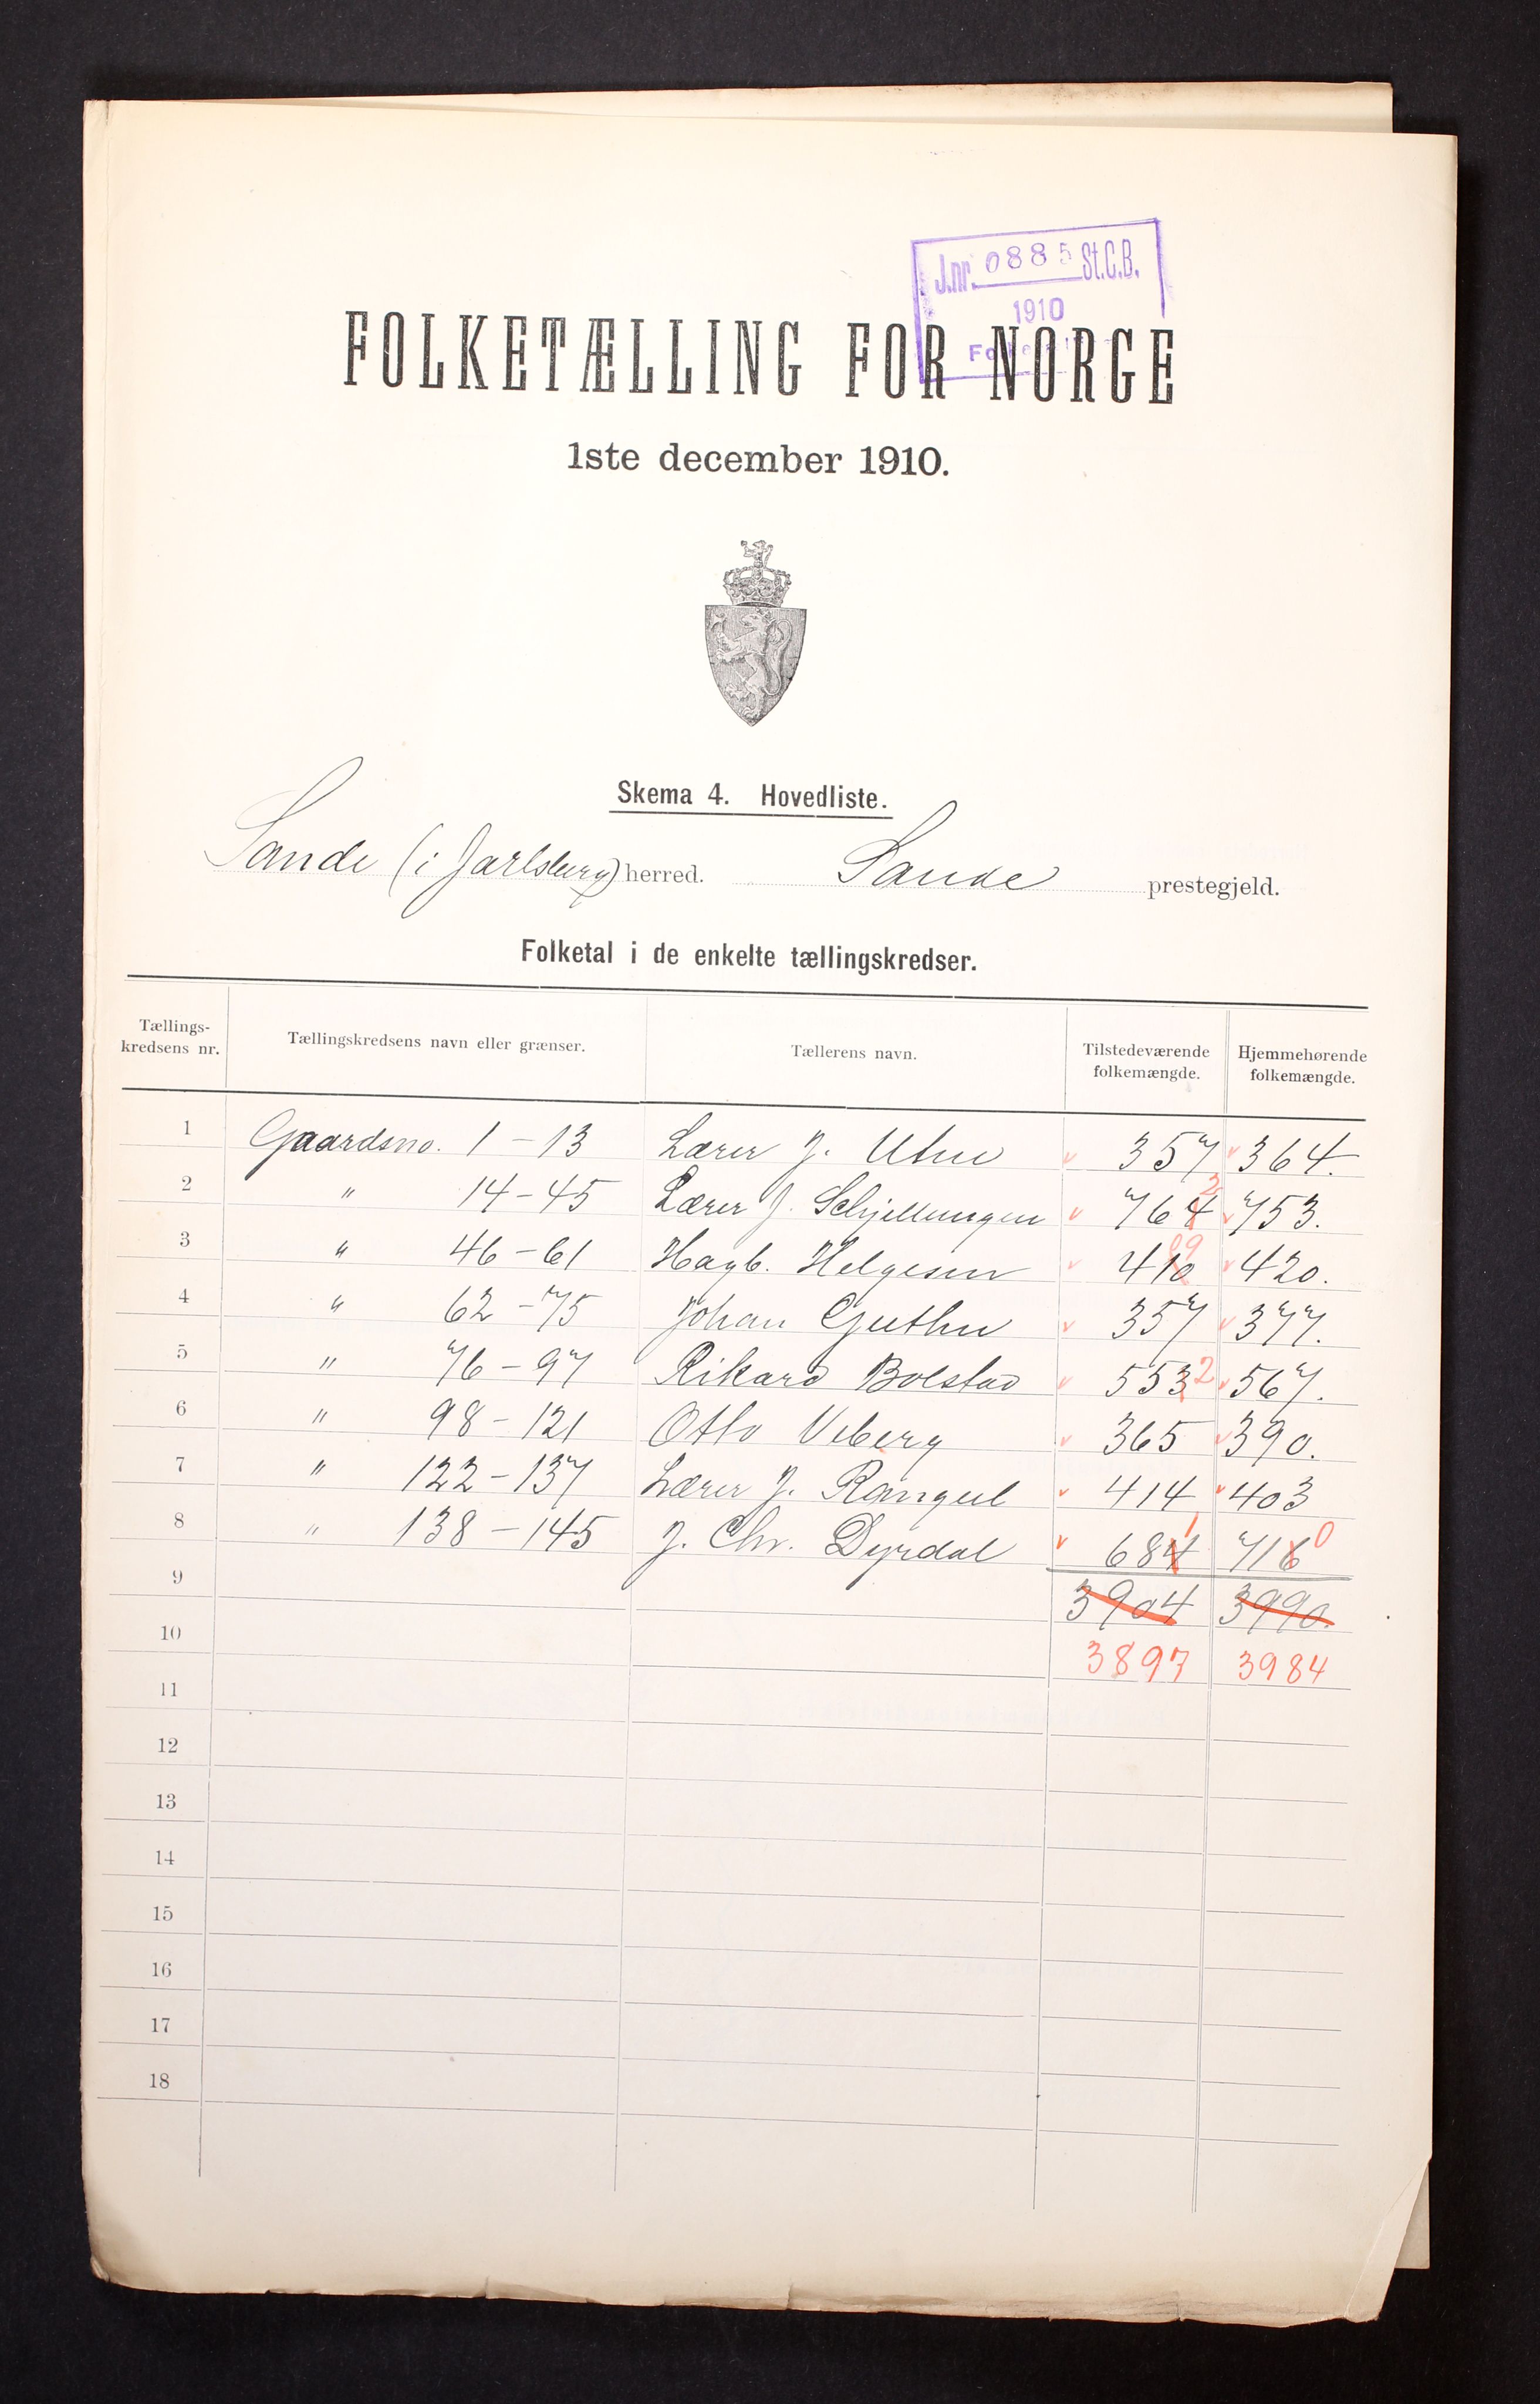 J.nr. 0885 St.C.B.
1910
FOLKETÆLLING FOR NORGE
1ste december 1910.
Skema 4. Hovedliste.
Sande (i Jarlsberg) herred. Sande prestegjeld.
Folketal i de enkelte tællingskredser.
Tællings-kredsens nr. Tællingskredsens navn eller grænser. Tællerens navn. Tilstedeværende folkemængde. Hjemmehørende folkemængde.
1 Gaardsno. 1 - 13 Lærer J. Utne 357 364.
2 " 14 - 45 Lærer J. 764 2 753.
3 " 46 - 61 Hagb. Helgesen 410 09 420.
4 " 62 - 75 Johan Guthu 357 377.
5 " 76 - 97 Rikard Bolstad 553 2 567.
6 " 98 - 121 Otto Veberg 365 390.
7 " 122 - 137 Lærer J. Rangul 414 403
8 " 138 - 145 J. Chr. Dyrdal 684 1 716 0
9 3904 3990.
10 3897 3984
11
12
13
14
15
16
17
18